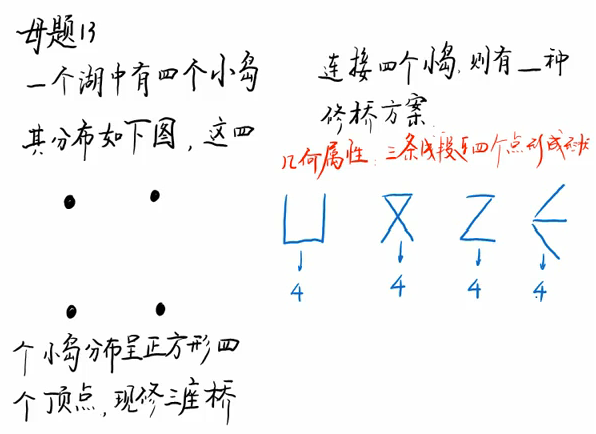 母题13
一个湖中有四个小岛
其分布如下图，这四
个小岛分布呈正方形四
个顶点，现修三座桥
连接四个小岛，则有__种
修桥方案.
几何属性：三条线段 四个点形成
4 4 4 4